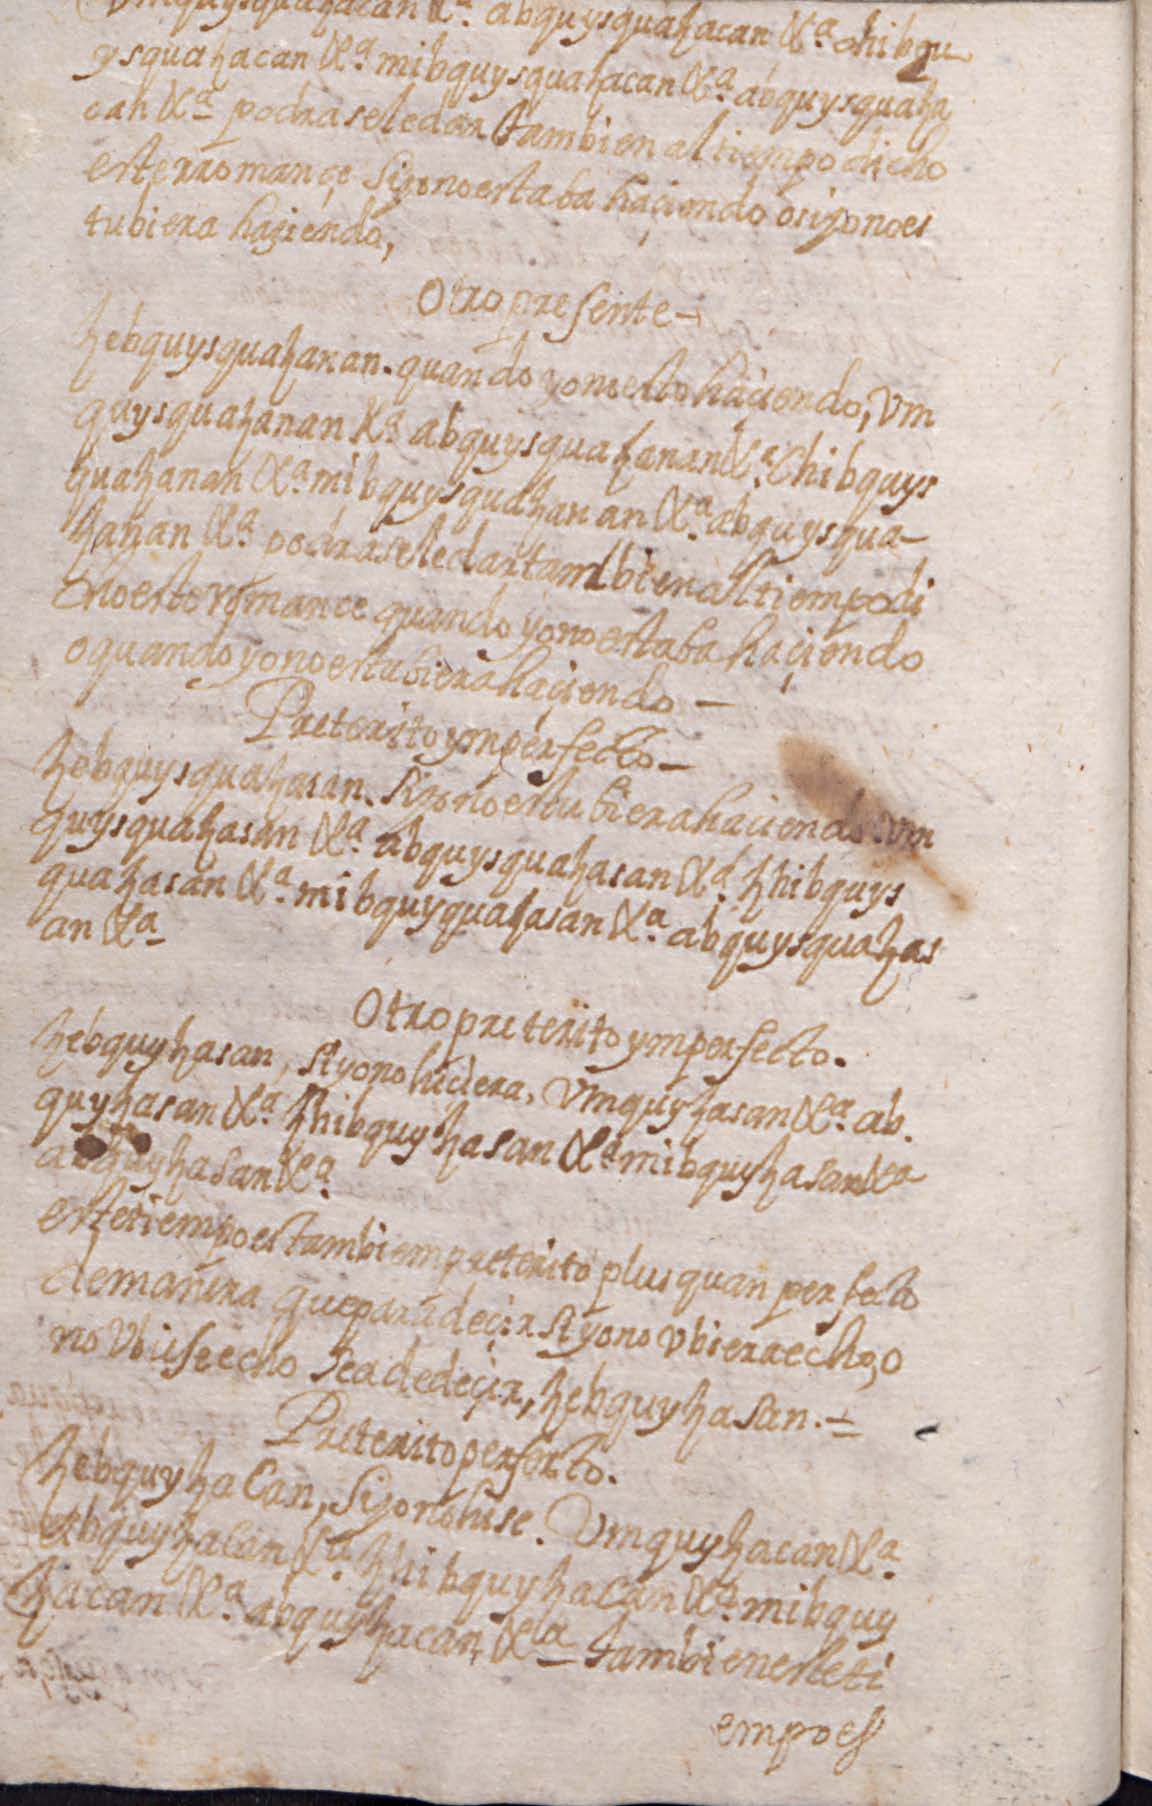 Vmquysquazacan &ª. abquysquazacan &ª chibqu
ysquazacan &ª mibquysquazacan &ª. abquysquaza
can &ª podraseledar tambien al tiempo dicho
este rromançe si yo no estaba haçiendo o si yo no es
tubiera haziendo,
Otro presente
hebquysquazanan. quando yo no esto haciendo, Vm
quysquazanan &ª abquysquazanan &ª. Chibquys
quazanan &ª. mibquysquazanan &ª. abquysqua-
zanan &ª podraseledar tambien al tiempo di
cho esto rromance quando yo no estaba haçiendo
o quando yo no estubiera haciendo —
Preterito ymperfecto —
hebquysquazasan. Si yo no estubiera haciendo. vm
quysquazasan &ª abquysquazasan &ª. zhibquys
quazasan &ª. mibquyquazasan &ª. abquysquazas
an &ª
Otro preterito ymperfecto.
hebquyzasan, si yo no hiciera, Vmquyzasan &ª ab.
quyzasan &ª. zhibquyzasan &ª mibquyzasan &ª
abquyzasan &ª.
este tiempo es tambiem preterito plusquan perfecto
de manera que para deçir si yo no Vbiera echo, o
no Vbiese echo sea de deçir, hebquyzasan. —
Preterito perfecto.
hebquyzacan, si yo no hise. Vmquyzacan &ª.
abquyzacan &ª. zhibquyzacan &ª. mibquy
zacan &ª. abquyzacan &ª tambien este ti
empo es